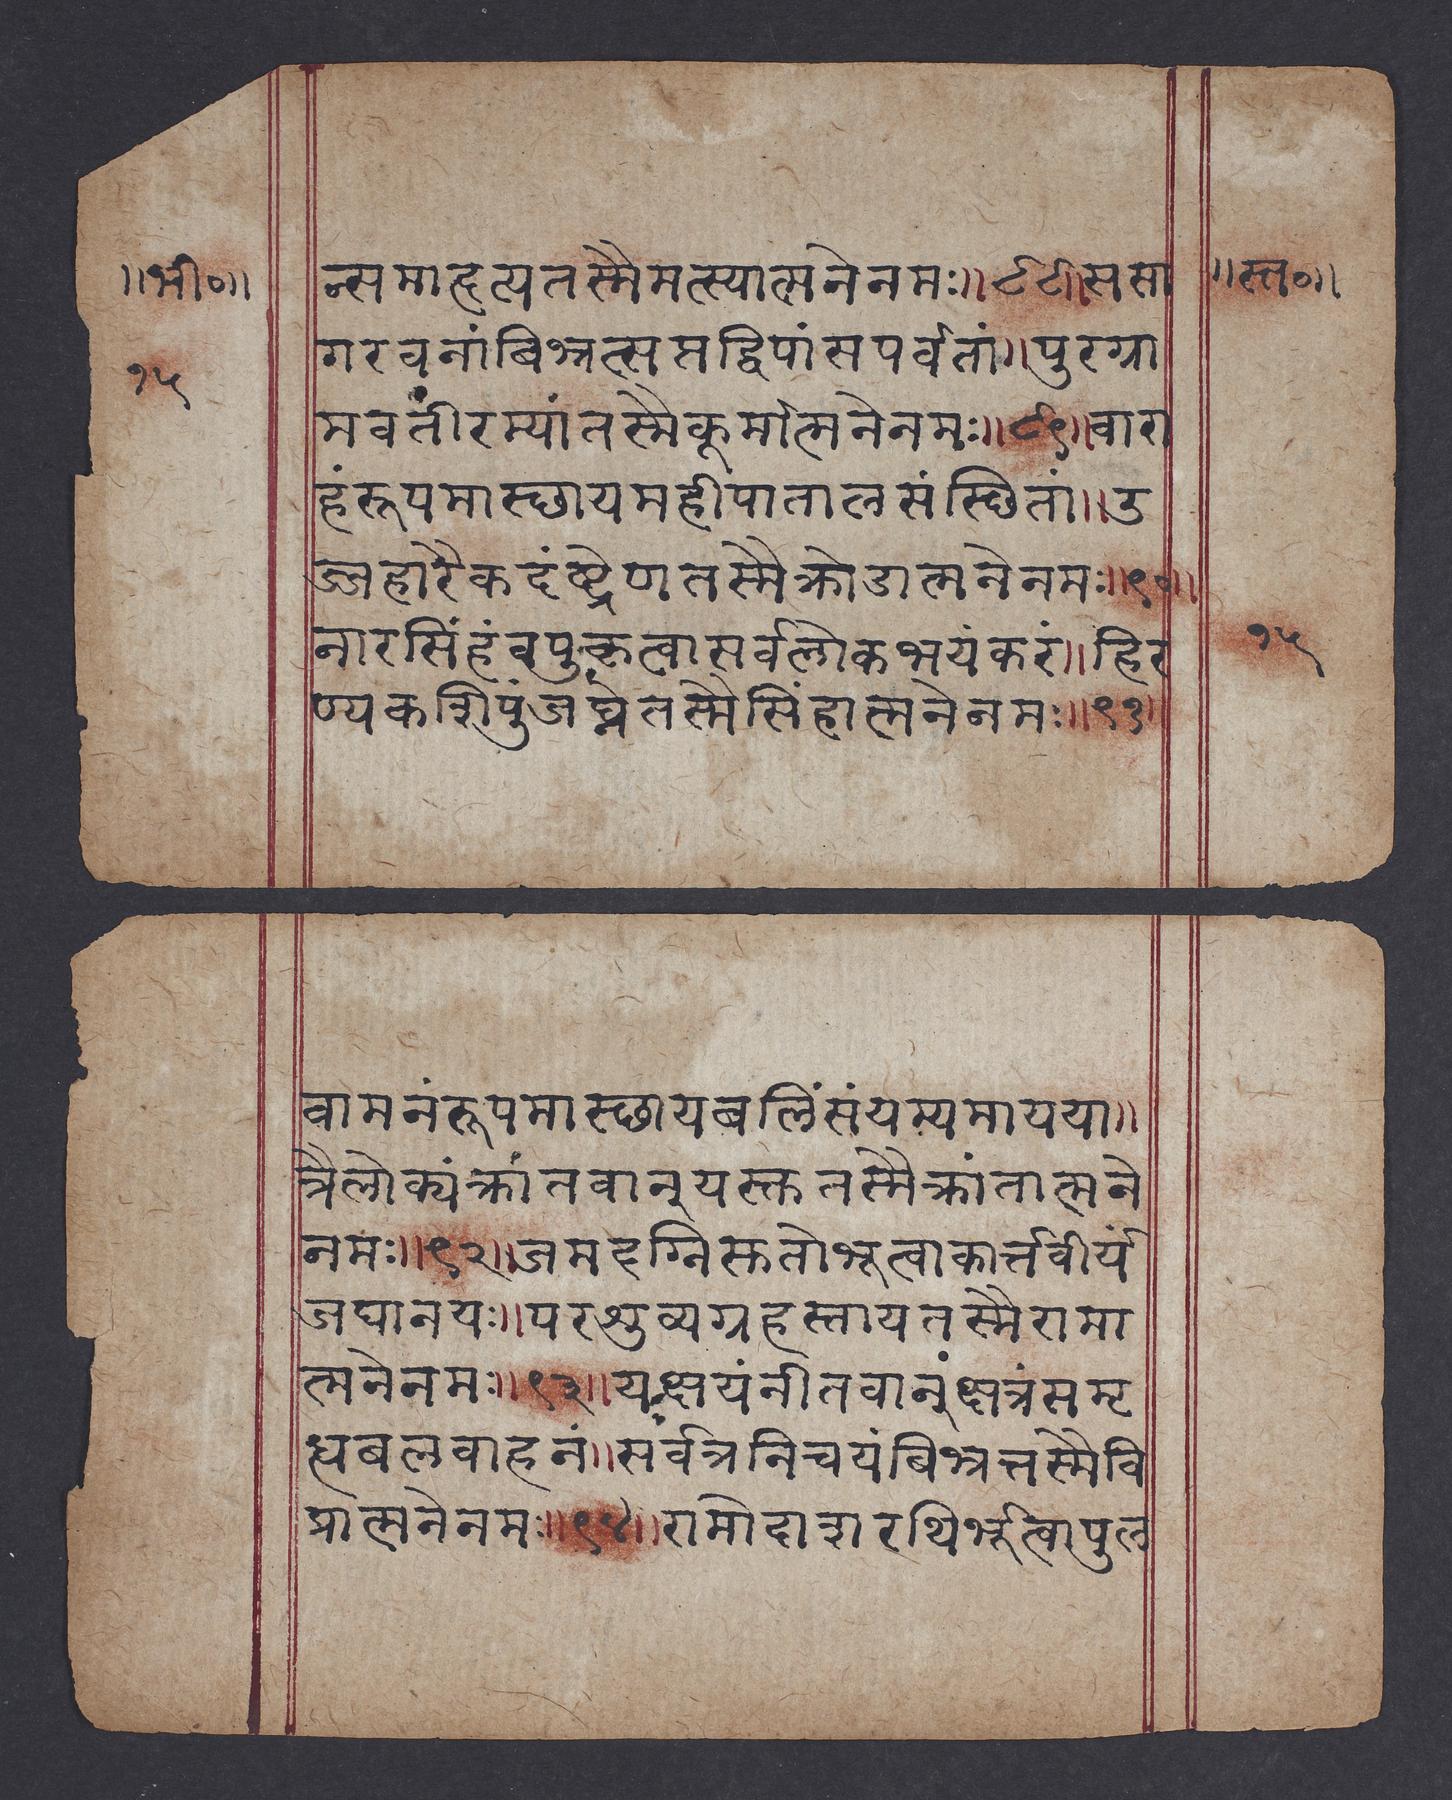 ॥भी०॥
१५
न्समाहृत्यतस्मैमत्स्यात्मनेनमः॥८८॥ससा
गरवनांबिभ्रत्सप्तद्विपांसपर्वतां॥पुरग्रा
मवतींरम्यांतस्मैकूर्मात्मनेनमः॥८९॥वारा
हंरूपमास्छायमहींपातालसंस्छितां॥उ
ज्जहारैकदंष्ट्रेणतस्मैक्रोडात्मनेनमः॥९०॥
नारसिंहंवपुःकृत्वासर्वलोकभयंकरं॥हिर
ण्यकशिपुंजघ्नेतस्मैसिंहात्मनेनमः॥९१॥
॥स्त०॥
१५
वामनंरूपमास्छायबलिंसंयम्यमायया॥
त्रैलोक्यंक्रांतवान्यस्क्ततस्मैक्रांतात्मने
नमः॥९२॥जमदग्निस्कतोभूत्वाकार्त्तवीर्यं
जघानयः॥परशुव्यग्रहस्तायतस्मैरामा
त्मनेनमः॥९३॥यःक्षयंनीतवान्क्षत्रंसमृ
ध्यबलवाहनं॥सर्वत्रनिचयंबिभ्रत्तस्मैवि
प्रात्मनेनमः॥९४॥रामोदाशरथिर्भूत्वापुल